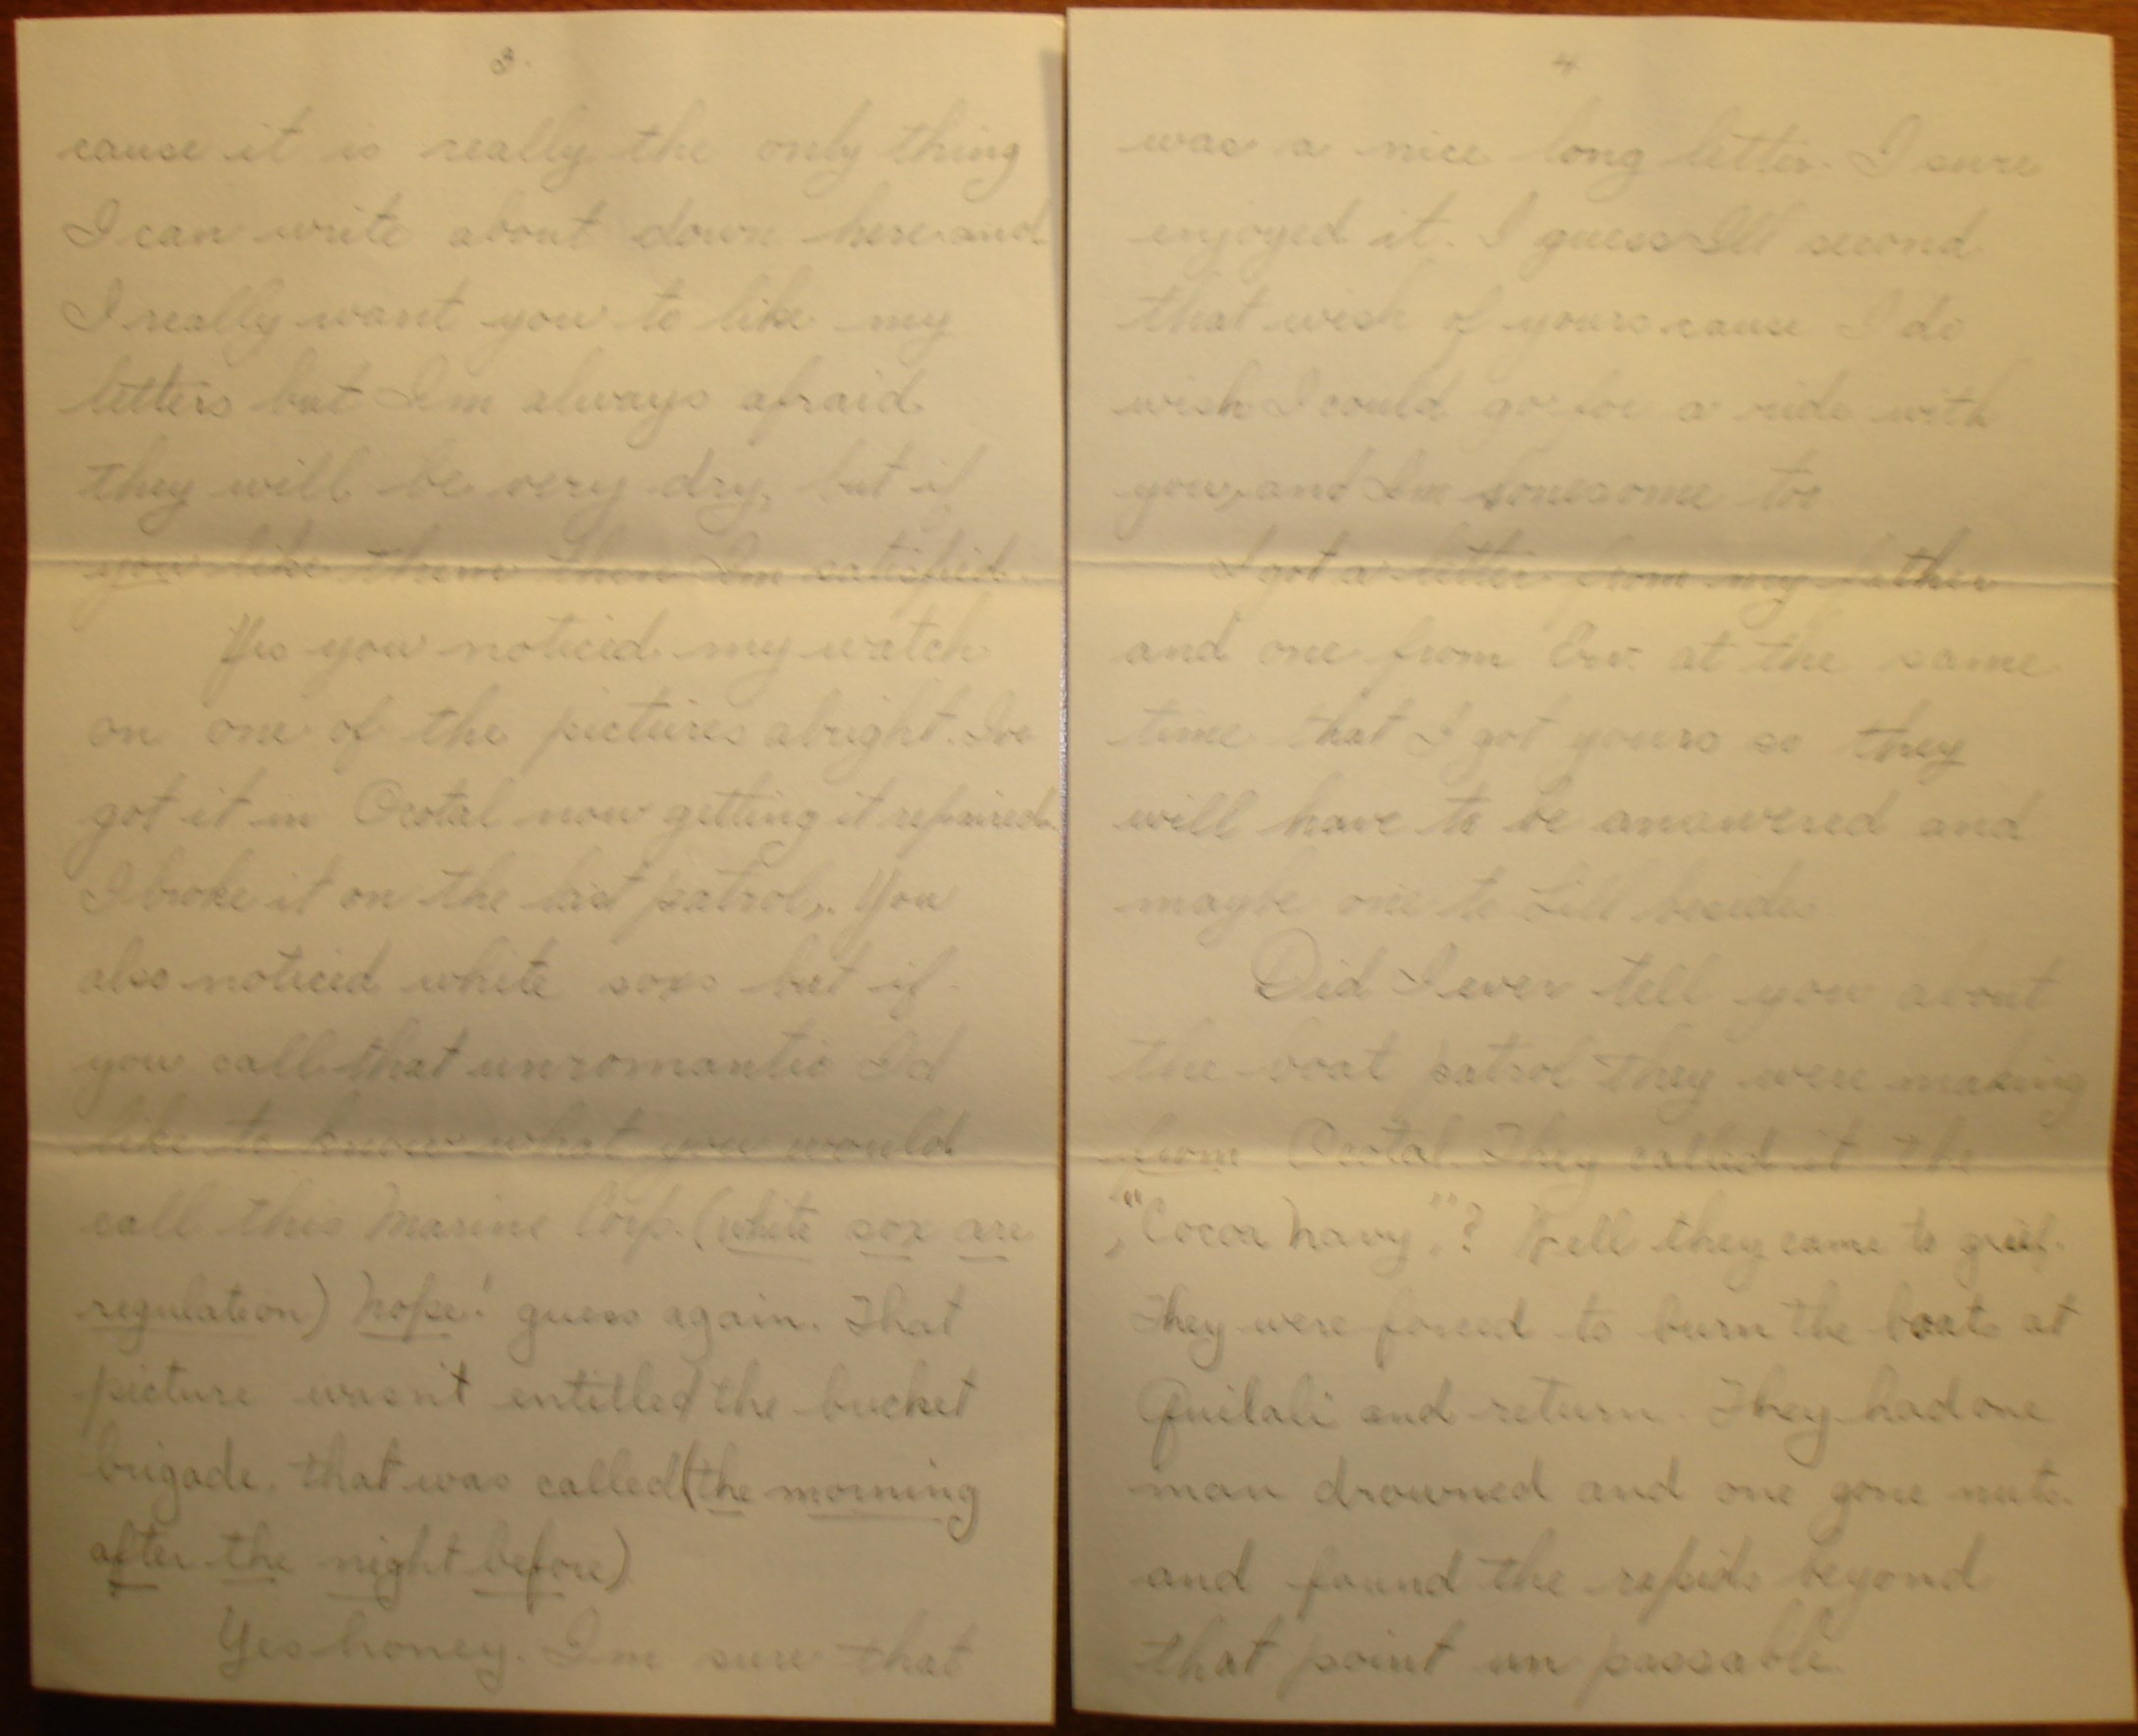 3.
cause it is really the only thing
I can write about down here and
I really want you to like my
letters but Im always afraid
they will be very dry, but if
you like them then Im satisfied.
Yes you noticed my watch
on one of the pictures alright. Ive
got it in Ocotal now getting it repaired.
I broke it on the last patrol,. You
also noticed white soxs but if
you call that unromantic Id
like to know what you would
call this Marine Corp. (white sox are
regulation) Nope! guess again. That
picture wasn't entitled the bucket
brigade, that was called (the morning
after the night before)
Yes honey. Im sure that
4
was a nice long letter. I sure
enjoyed it. I guess Ill second
that wish of yours cause I do
wish I could go for a ride with
you, and Im lonesome too
I got a letter from my father
and one from Erv. at the same
time that I got yours so they
will have to be answered and
maybe one to Lill beside.
Did I ever tell you about
the boat patrol they were making
from Ocotal. They called it the
"Cocoa Navy"? Well they came to grief.
They were forced to burn the boats at
Quilali and return. They had one
man drowned and one gone nuts.
and found the rapids beyond
that point un passable.